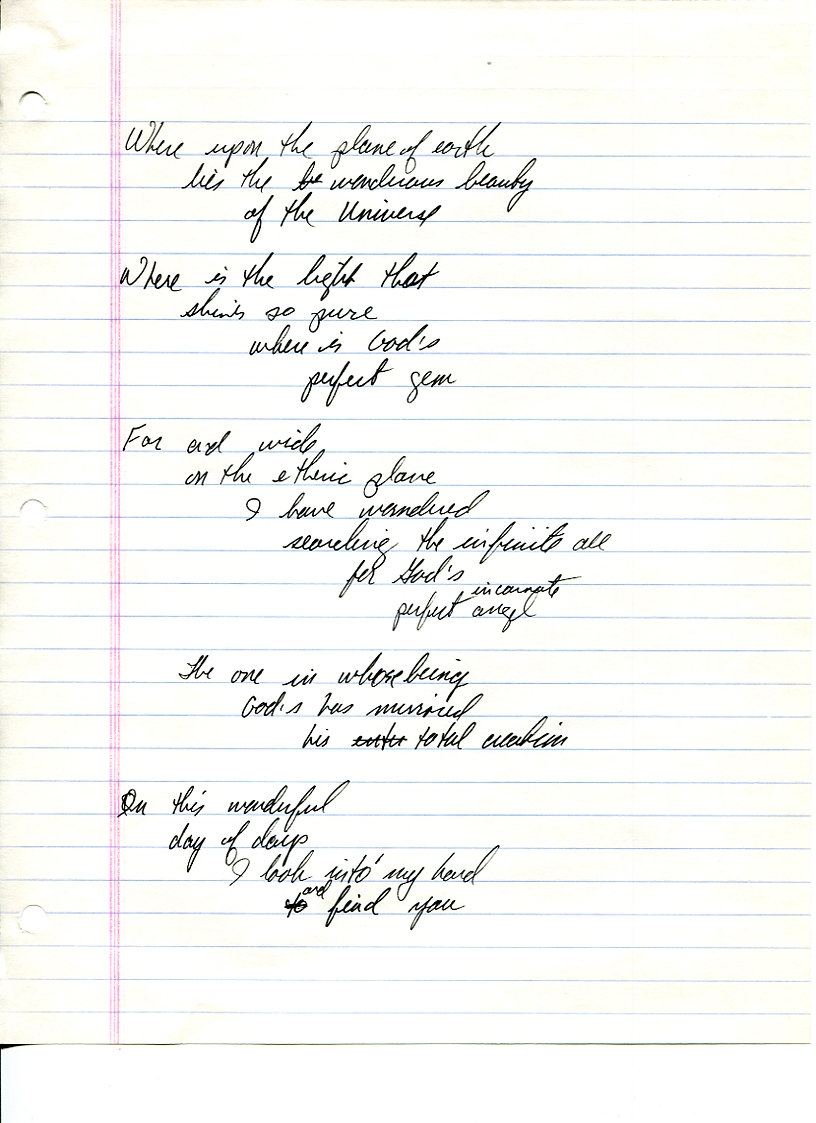 Where upon the plane of earth
lies the be wondrous beauty
of the Universe
Where is the light that
shines so pure
where is God's
perfect gem
Far and wide
on the etheric plane
I have wandered
searching the infinite all
for God's
incarnate
perfect angel
The one in whose being
God's has mirrored
his enter total creation
On this wonderful
day of days
I look into my hand
and
to find you